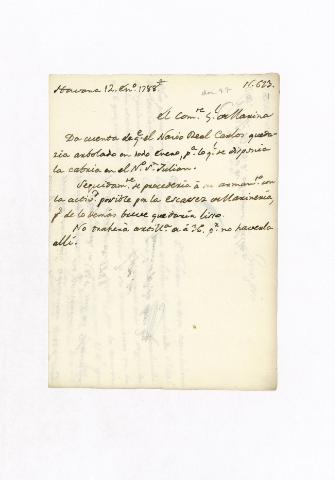 Havana 12. En.º 1788
N. 623.
El Com.te G.l de Marina
Da cuenta de q.e el Navio Real Carlos queda-
ria arbolado en todo Enero, p.a lo q.e se disponia
la cabria en el N.o S.n Julian.
Seguidam.te se procederia á su armam.to con
la activ.d posible por la escasez de Marineria,
q.e de lo demas breve quedaria listo.
No traherá artill.ria de á 36. p.r no haverla
allí.